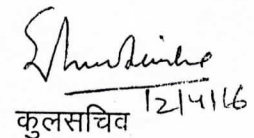 12/4/16
कुलसचिव